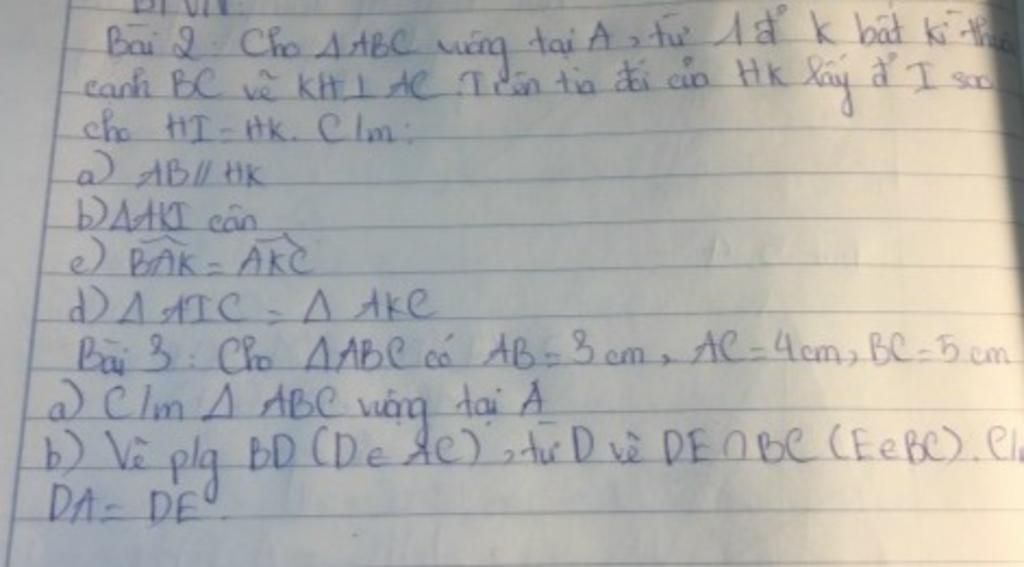 Bài 2: Cho ΔABC vuông tại A, từ 1 đ' K bất kì
cạnh BC vẽ KH⊥AC. Trên tia đối của HK lấy đ' I sao
cho HI=HK. C/m:
a) AB//HK
b) ΔAKI cân
c) BAK = AKC
d) Δ AIC = Δ AKC
Bài 3: Cho ΔABC có AB=3cm, AC=4cm, BC=5cm
a) C/m Δ ABC vuông tại A
b) Vẽ p/g BD (D∈AC), từ D vẽ DE∩BC (E∈BC).
DA= DE.